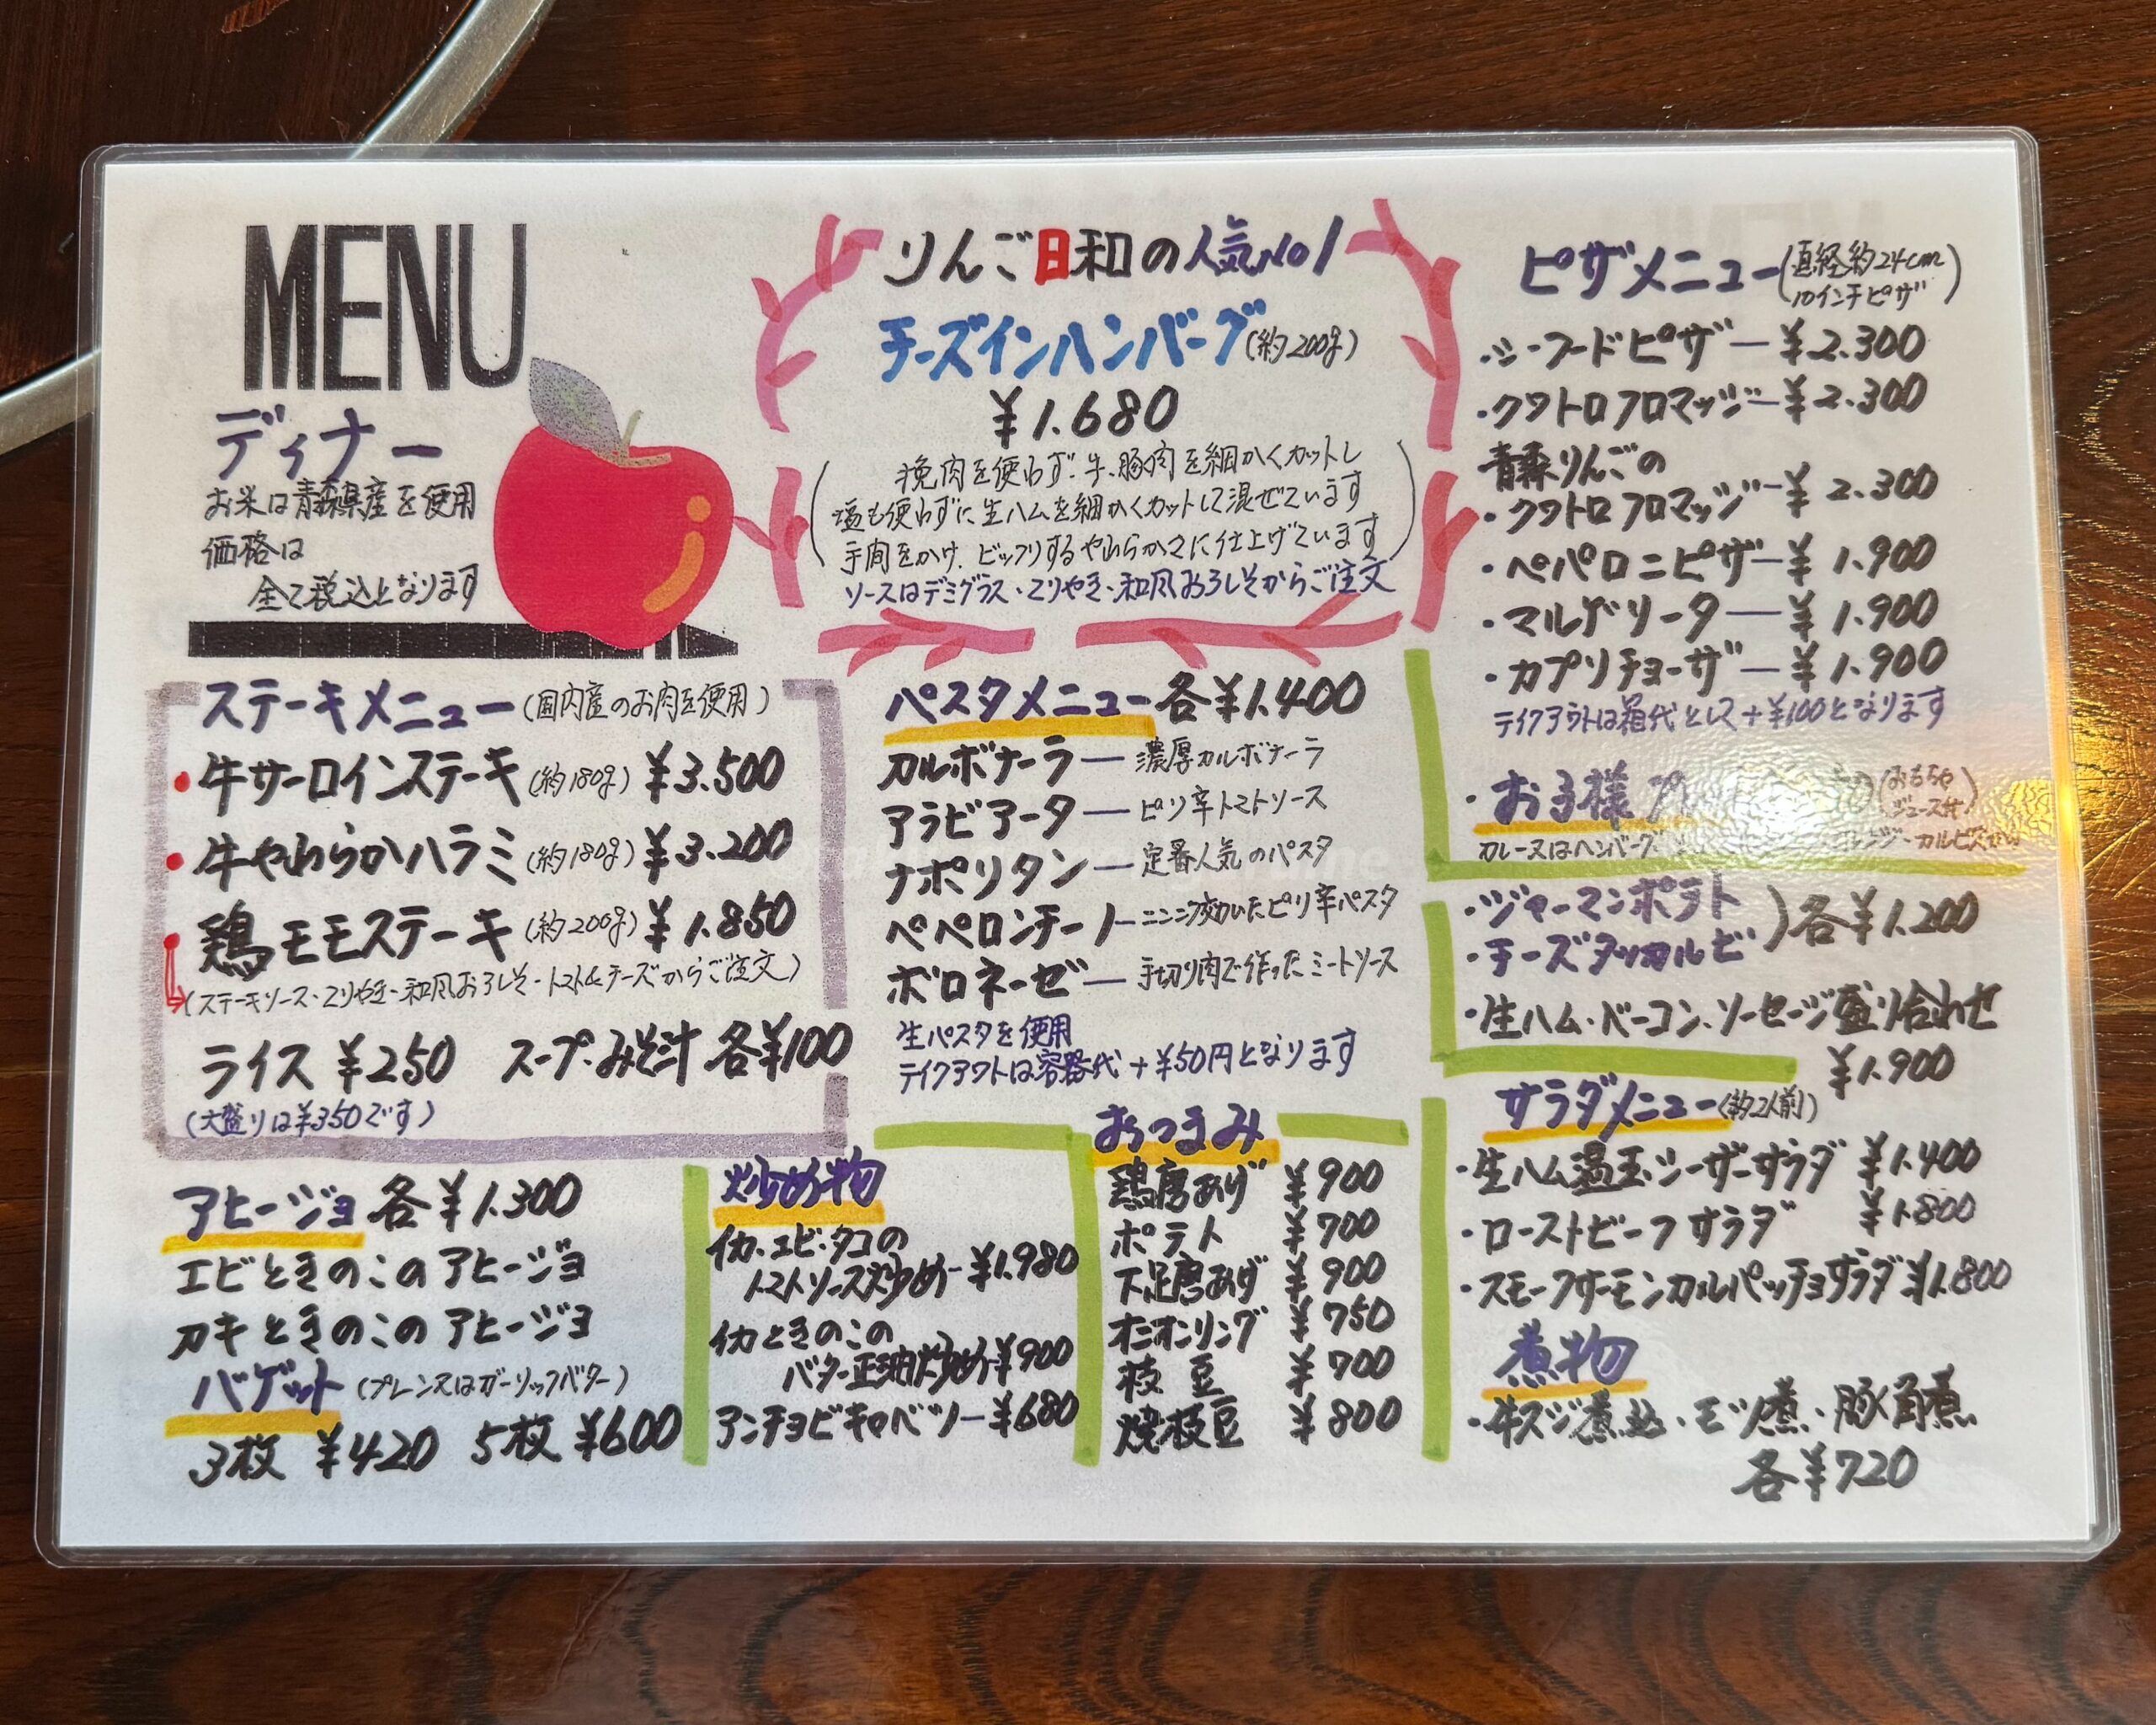 MENU
ディナー
お米は青森県産を使用
価格は
全て税込となります
りんご日和の人気No1
チーズインハンバーグ(約200g)
¥1.680
(挽肉を使わず、牛、豚肉を細かくカットし
塩も使わずに生ハムを細かくカットして混ぜています
手間をかけ、ビックリするやわらかさに仕上げています)
ソースはデミグラス・てりやき・和風おろしそからご注文
ステーキメニュー(国内産のお肉を使用)
・牛サーロインステーキ(約180g) ¥3.500
・牛やわらかハラミ(約180g) ¥3.200
・鶏モモステーキ(約200g) ¥1.850
(ステーキソース・てりやき・和風おろしそ・トマト&チーズからご注文)
ライス ¥250 スープ・みそ汁 各¥100
(大盛りは¥350です)
アヒージョ 各¥1.300
エビときのこのアヒージョ
カキときのこのアヒージョ
バゲット(プレンスはガーリックバター)
3枚 ¥420 5枚 ¥600
パスタメニュー 各¥1.400
カルボナーラ―濃厚カルボナーラ
アラビアータ―ピリ辛トマトソース
ナポリタン―定番人気のパスタ
ペペロンチーノ―ニンニク効いたピリ辛パスタ
ボロネーゼ―手切り肉で作ったミートソース
生パスタを使用
テイクアウトは容器代+¥50円となります
炒め物
イカ、エビ・タコの
トマトソース炒め―¥1.980
イカときのこの
バター正油炒め―¥900
アンチョビキャベツ―¥680
おつまみ
鶏唐あげ ¥900
ポテト ¥700
下足唐あげ ¥900
オニオンリング ¥750
枝豆 ¥700
焼枝豆 ¥800
ピザメニュー(直経約24cm
10インチピザ)
・シーフードピザ―¥2.300
・クワトロフロマッジ―¥2.300
青森りんごの
・クワトロフロマッジ―¥2.300
・ペパロニピザ―¥1.900
・マルゲリータ―¥1.900
・カプリチョーザ―¥1.900
テイクアウトは箱代として+¥100となります
・お子様 (おもちゃ
ジュース付)
カレー又はハンバーグ
・ジャーマンポテト
・チーズタッカルビ
各¥1.200
・生ハム・ベーコン、ソーセージ盛り合わせ
¥1.900
サラダメニュー(約2人前)
・生ハム温玉シーザーサラダ ¥1.400
・ローストビーフサラダ ¥1.800
・スモークサーモンカルパッチョサラダ ¥1.800
煮物
・牛スジ煮込・モツ煮・豚角煮
各¥720